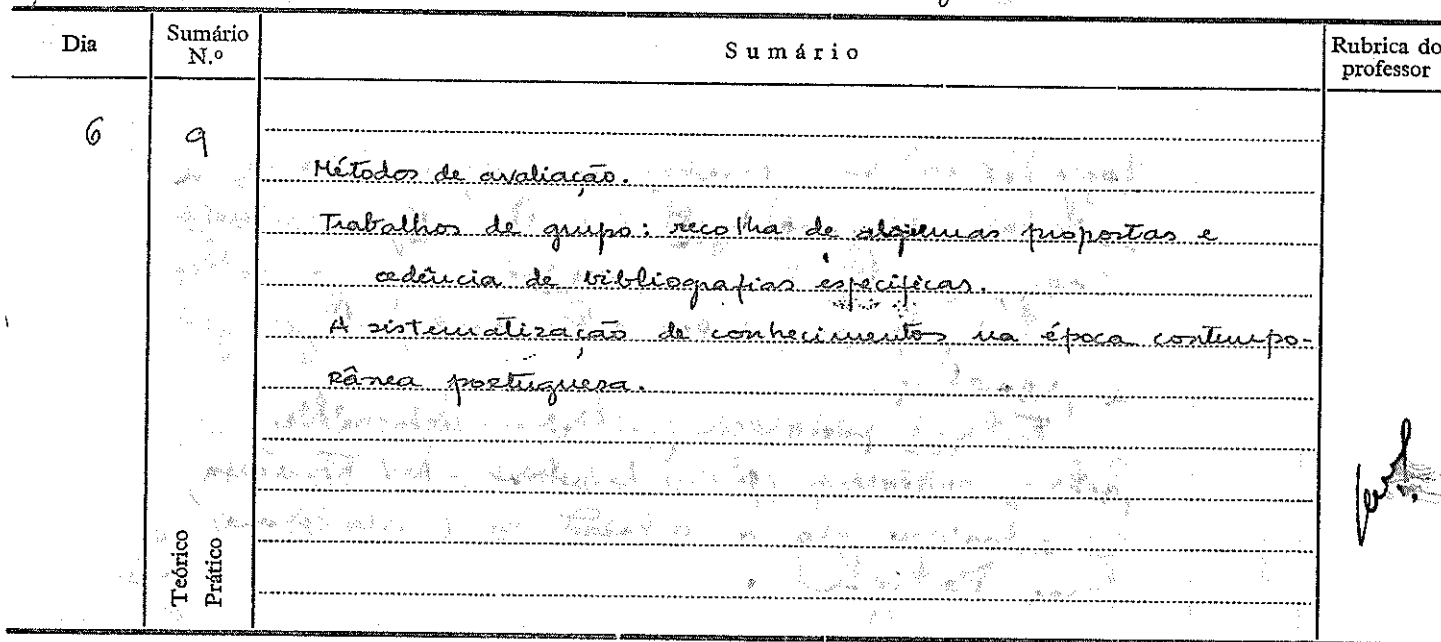 Dia
Sumário N.º
Sumário
Rubrica do professor
6
9
Métodos de avaliação.
Trabalhos de grupo: recolha de algumas propostas e
cedência de bibliografias específicas.
A sistematização de conhecimentos na época contempo-
rânea portuguesa.
Teórico
Prático